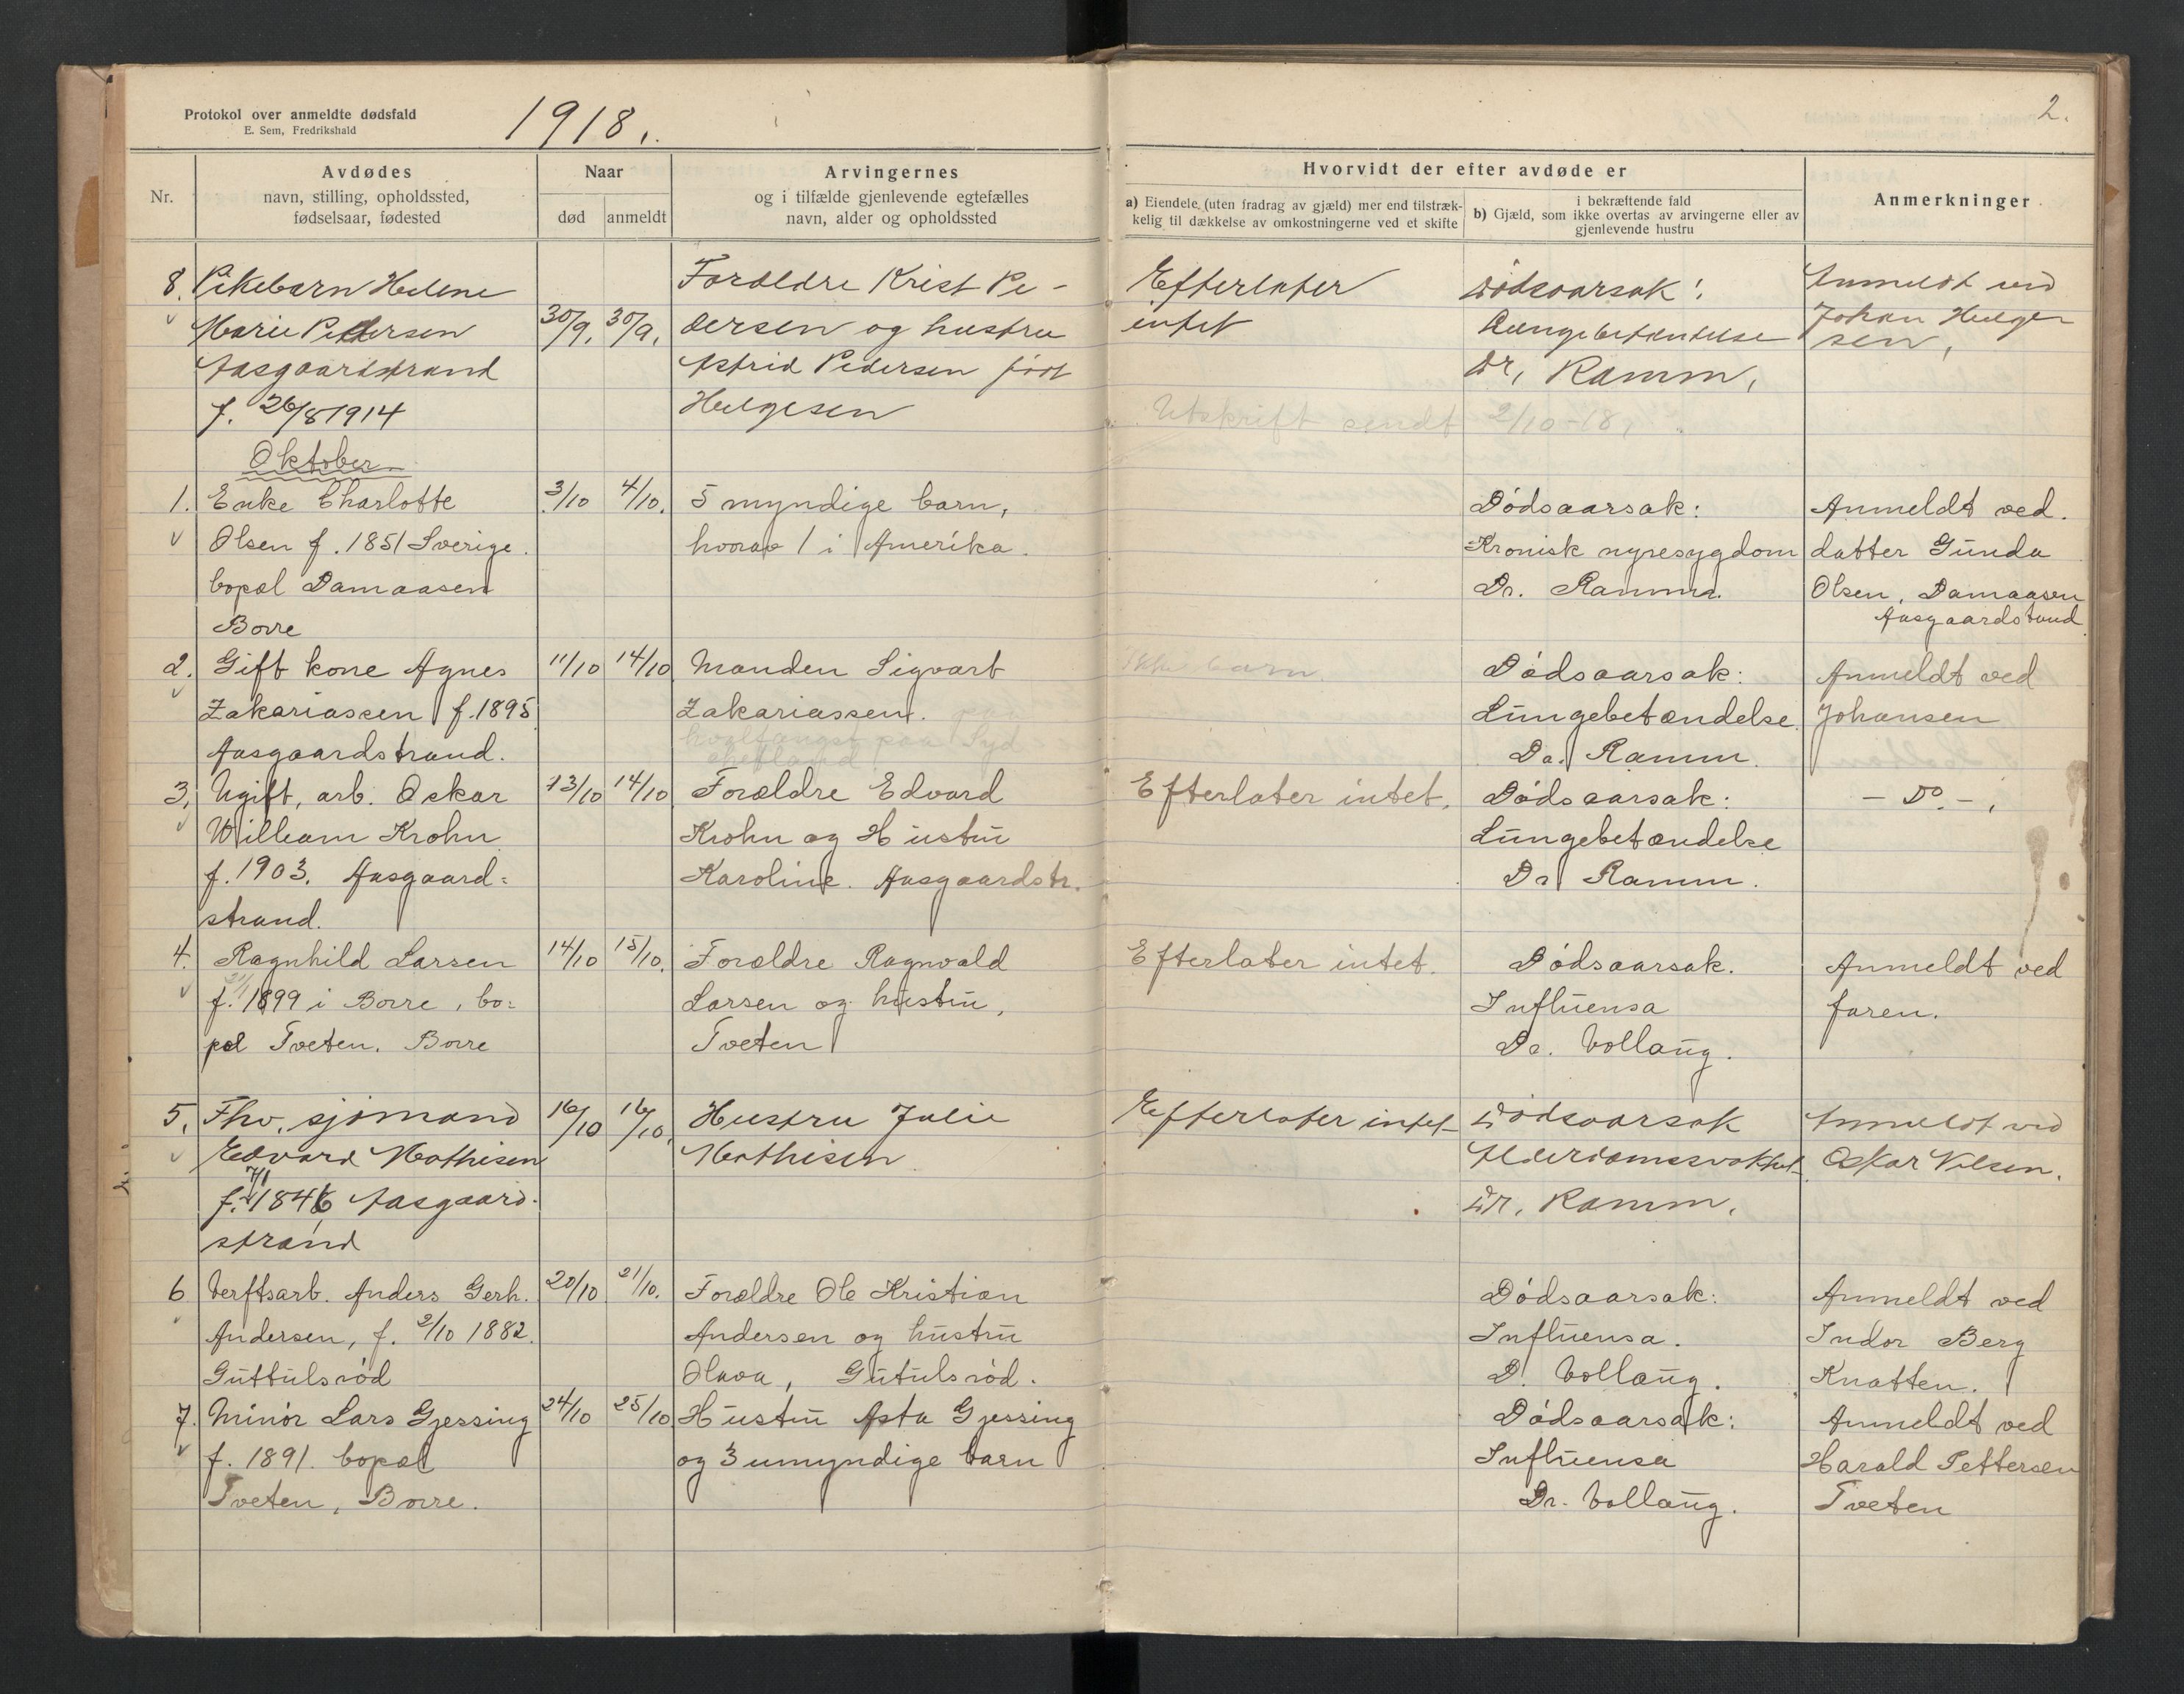 Protokol over anmeldte dødsfald
E. Sem, Fredrikshald
1918.
2.
Nr.
Avdødes
navn, stilling, opholdssted,
fødselsaar, fødested
Naar
død
anmeldt
Arvingernes
og i tilfælde gjenlevende egtefælles
navn, alder og opholdssted
Hvorvidt der efter avdøde er
a) Eiendele, (uten fradrag av gjæld) mer end tilstræk-
kelig til dækkelse av omkostningerne ved et skifte
i bekræftende fald
b) Gjæld, som ikke overtas av arvingerne eller av
gjenlevende hustru
Anmerkninger
8. Pikebarn Helene
Marie Pedersen
Aasgaardstrand
f. 26/8 1914
30/9. 30/9.
Forældre Krist Pe-
dersen og hustru
Astrid Pedersen født
Helgesen
Efterlater
intet
Dödsaarsak:
Lungebetændelse
Dr. Ramm.
Anmeldt ved
Johan Helge
sen.
Utskrift sendt 2/10-18.
Oktober
1. Enke Charlotte
Olsen f. 1851 Sverige.
bopæl Damaasen
Borre
3/10 4/10.
5 myndige barn,
hvorav 1 i Amerika.
Dödsaarsak:
Kronisk nyresygdom
Dr. Ramm.
Anmeldt ved.
datter Gunda
Olsen, Damaasen
Aasgaardstrand.
2. Gift kone Agnes
Zakariassen f. 1895
Aasgaardstrand.
11/10 14/10
Manden Sigvart
Zakariassen.
hvalfangst paa Syd
shetland
Ikke barn.
Dödsaarsak:
Lungebetændelse
Dr. Ramm.
Anmeldt ved
Johansen
3, Ugift, arb. Oskar
William Krohn
f. 1903. Aasgaard=
strand.
13/10 14/10
Forældre Edvard
Krohn og Hustru
Karoline. Aasgaardstr.
Efterlater intet.
Dödsaarsak:
Lungebetændelse
Dr Ramm.
- Do. -.
4. Ragnhild Larsen
f. 1899 i Borre, bo=
pæl Tveten. Borre
14/10 15/10.
Forældre Ragnvald
Larsen og hustru,
Tveten
Efterlater intet.
Dödsaarsak.
Influensa
Dr. Vollaug.
Anmeldt ved
faren.
5, Fhv. sjömand
Edvard Mathisen
f. 7/1 1846 Aasgaard-
strand
16/10 16/10.
Hustru Julie
Mathisen
Efterlater intet
Dödsaarsak
Alderdomssvakhet
Dr. Ramm.
Anmeldt ved
Oskar Nilsen.
6 Verftsarb. Anders Gerh.
Andersen, f. 2/10 1882.
Guttulsröd
20/10 21/10.
Forældre Ole Kristian
Andersen og hustru
Olava, Gutulsröd.
Dödsaarsak:
Influensa.
D. Vollaug.
Anmeldt ved
Indor Berg
Knatten.
7. Minör Lars Gjessing
f. 1891. bopæl
Tveten, Borre.
24/10 25/10
Hustru Asta Gjessing
og 3 umyndige barn
Dödsaarsak:
Influensa
Dr. Vollaug.
Anmeldt ved
Harald Pettersen
Tveten